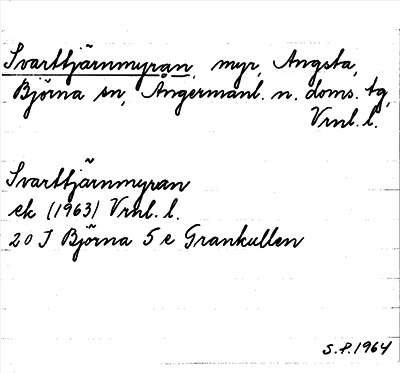 Svarttjärnmyran, myr, Angsta,
Björna sn, Ångermanl. n. doms. tg,
Vrnl. l.
Svarttjärnmyran
ek (1963) Vrnl. l.
20 J Björna 5 e Grankullen
S.P. 1964